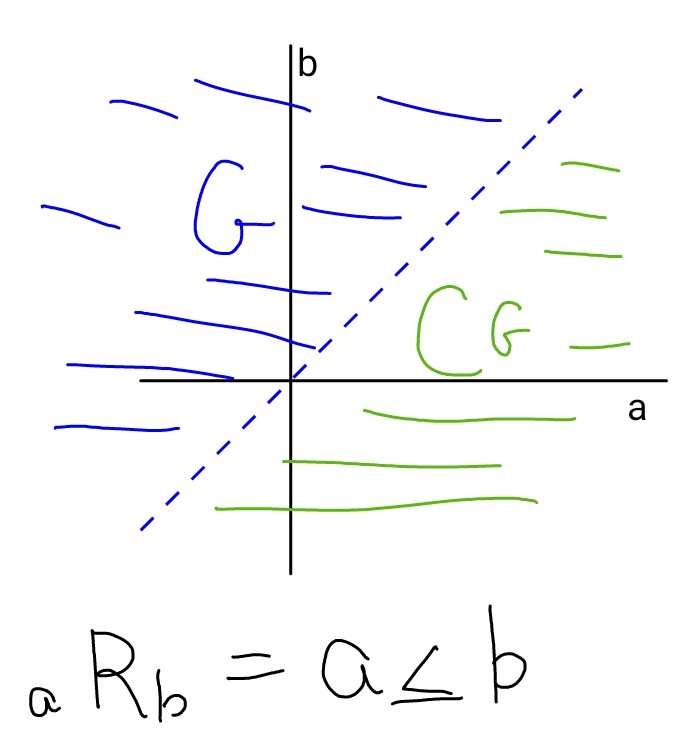 b
G
CG
a
a R b = a ≤ b